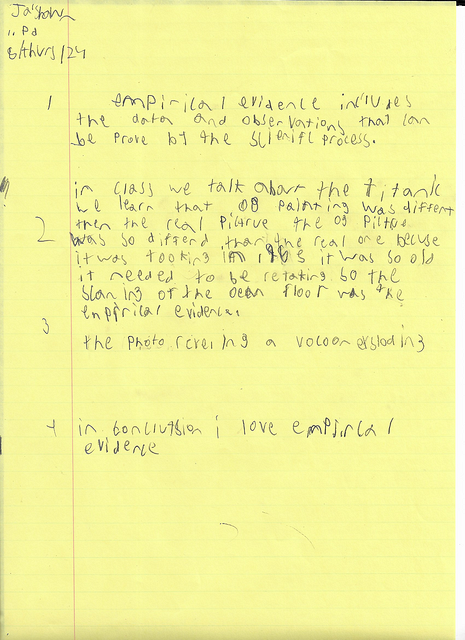 Ja'shawn
1. Pd
6/thurs/24
1 empirical evidence incluses
the data and observations that can
be prove by the scienific process.
in class we talk about the titanic
we learn that OG painting was differt
2 then the real picture the OG Pictroe
was so differd than the real one becuse
it was tooking in it was so old
it needed to be retaking so the
Scaning of the ocean floor was the
enpirical evidence.
3 the photo a
4 in conclution i love empirical
evidence